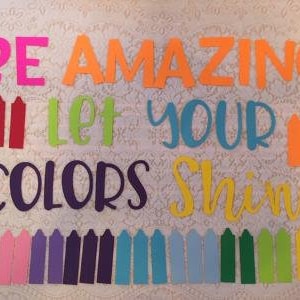 BE AMAZING
Let YOUR
COLORS Shin